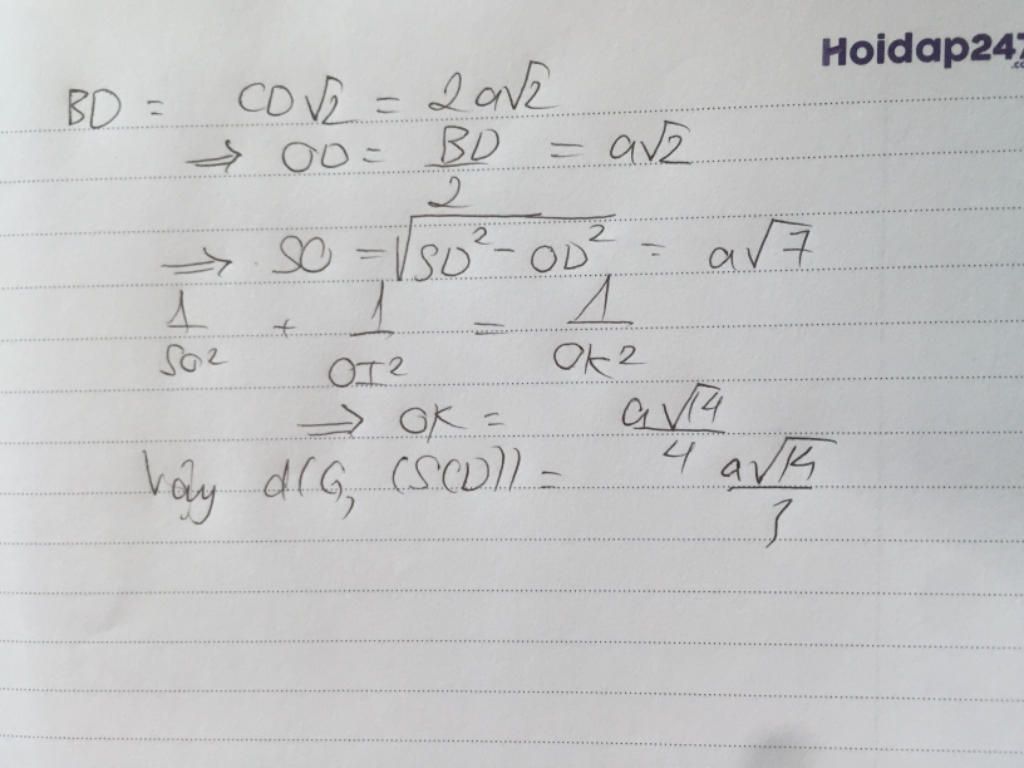 Hoidap247
.co
BD = CD√2 = 2a√2
⇒ OD = BD/2 = a√2
⇒ SO = √(SD² - OD²) = a√7
1/SO² + 1/OI² = 1/OK²
⇒ OK = a√14/4
Vậy d(G, (SCD)) = a√14/3